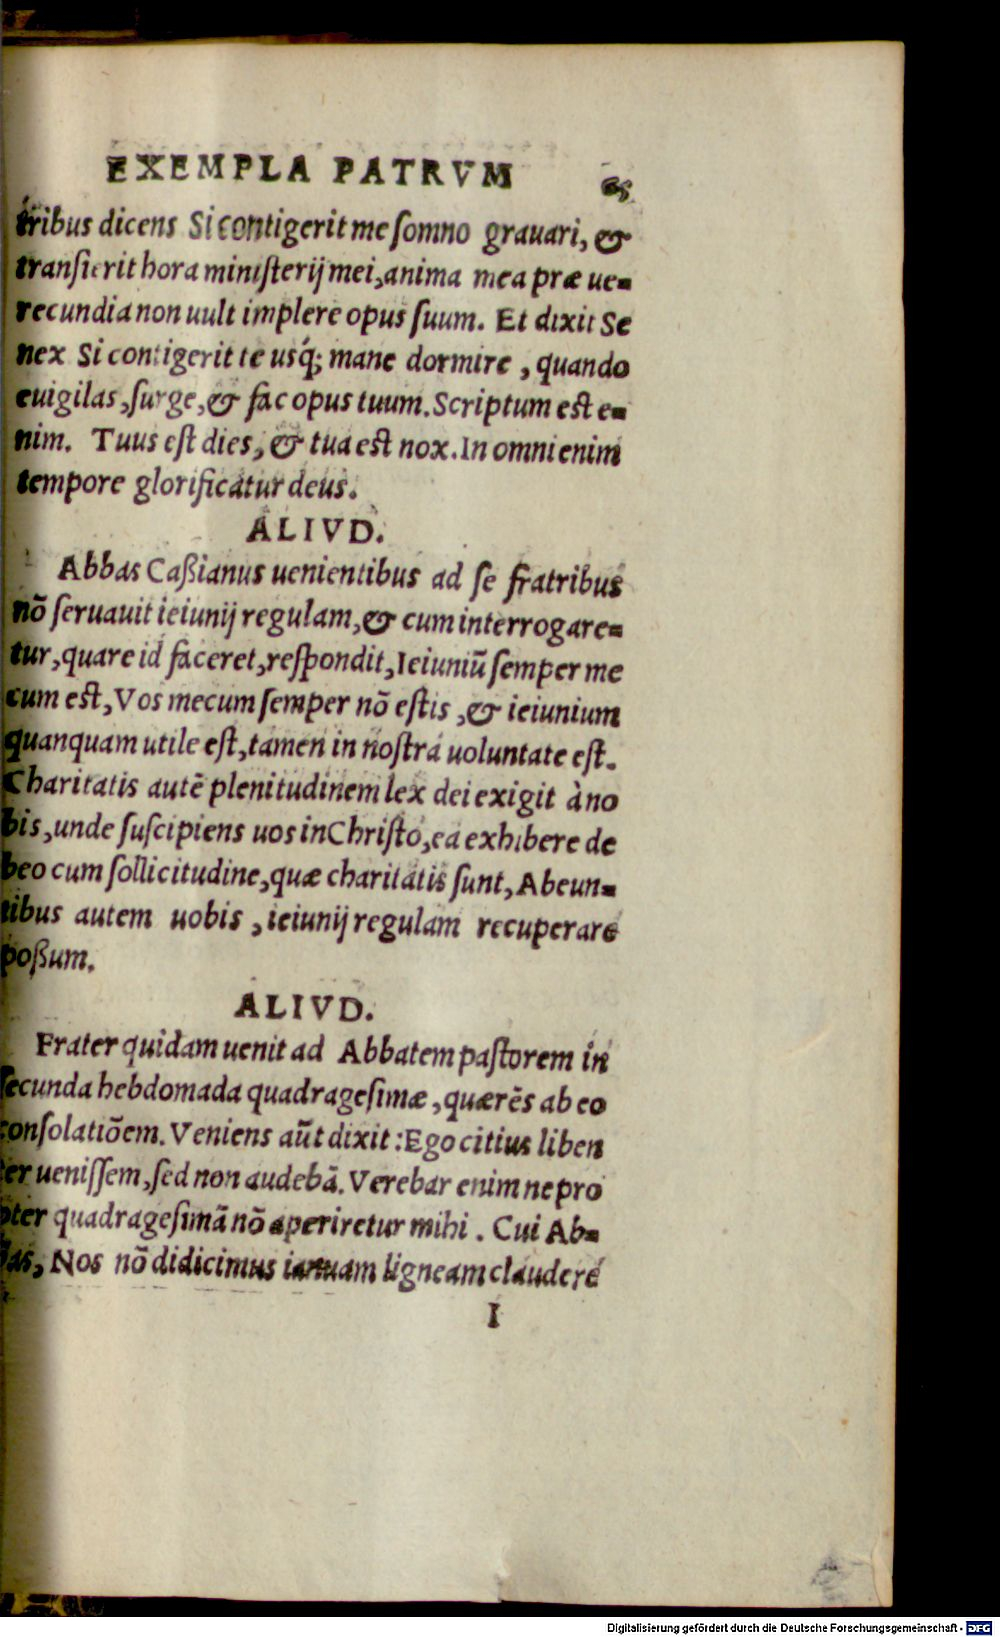 EXEMPLA PATRVM 65
tribus dicens Si contigerit me ſomno grauari, &
tranſierit hora miniſterij mei, anima mea præ ue-
recundia non uult implere opus ſuum. Et dixit Se
nex Si contigerit te usq́; mane dormire, quando
euigilas, ſurge, & fac opus tuum. Scriptum eſt e-
nim. Tuus eſt dies, & tua eſt nox. In omni enim
tempore glorificatur deus.
ALIVD.
Abbas Caßianus uenientibus ad ſe fratribus
nō ſeruauit ieiunij regulam, & cum interrogare-
tur, quare id faceret, reſpondit, Ieiuniū ſemper me
cum eſt, Vos mecum ſemper nō eſtis, & ieiunium
quanquam utile eſt, tamen in noſtra uoluntate eſt.
Charitatis autē plenitudinem lex dei exigit à no
bis, unde ſuſcipiens uos in Chriſto, ea exhibere de
beo cum ſollicitudine, quæ charitatis ſunt, Abeun-
tibus autem uobis, ieiunij regulam recuperare
poßum.
ALIVD.
Frater quidam uenit ad Abbatem paſtorem in
ſecunda hebdomada quadrageſimæ, quærēs ab eo
conſolatiōem. Veniens aūt dixit: Ego citius liben
ter ueniſſem, ſed non audebā. Verebar enim ne pro
pter quadrageſimā nō aperiretur mihi. Cui Ab-
bas, Nos nō didicimus ianuam ligneam claudere
I
Digitalisierung gefördert durch die Deutsche Forschungsgemeinschaft - DFG